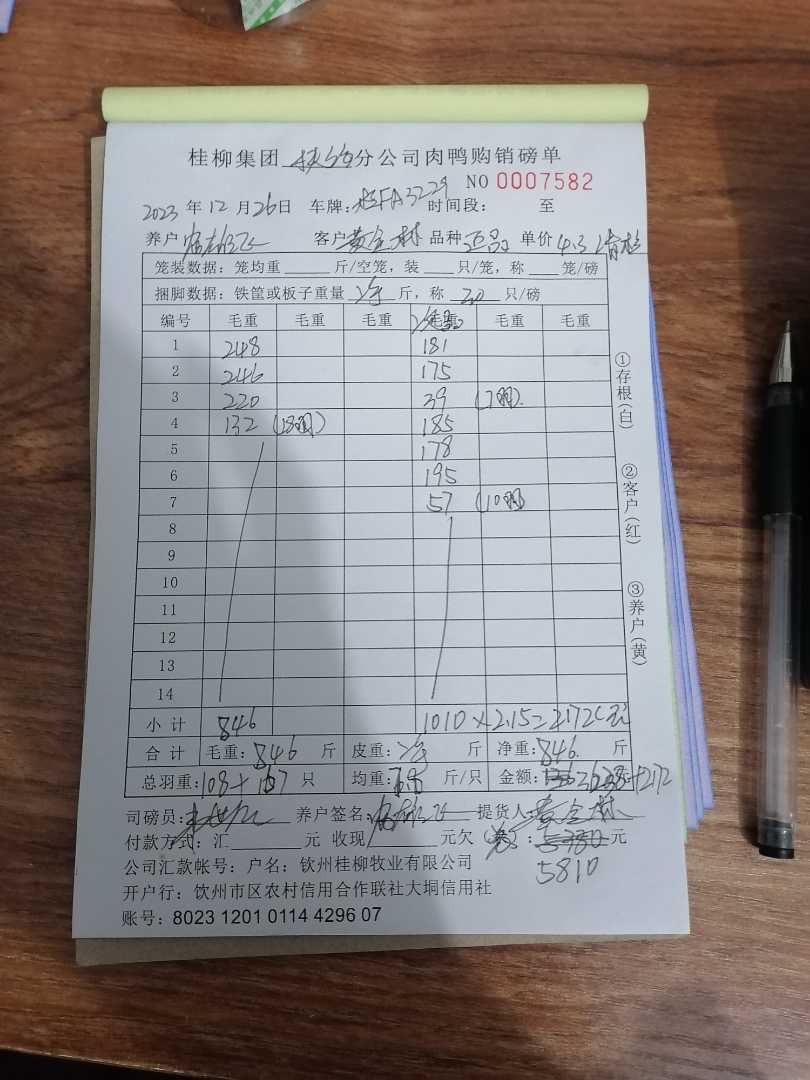 桂柳集团 分公司肉鸭购销磅单
NO 0007582
2023 年 12 月 26 日 车牌: FA3229 时间段: 至
养户 客户 黄全林 品种 单价 4.3
笼装数据：笼均重 斤/空笼，装 只/笼，称 笼/磅
捆脚数据：铁筐或板子重量 净 斤，称 20 只/磅
编号 毛重 毛重 毛重 毛重 毛重 毛重
1 248 181
2 246 175
3 220 39
4 132 (18羽) 185
5 178
6 195
7 57 (10羽)
8
9
10
11
12
13
14
小计 846 1010×2.15=2172元
合计 毛重: 846 斤 皮重: 净 斤 净重: 846 斤
总羽重: 108+107 只 均重: 斤/只 金额: 3638+2172
司磅员: 养户签名: 提货人: 黄全林
付款方式: 汇 元 收现 元欠 : 5780 元
5810
公司汇款帐号：户名：钦州桂柳牧业有限公司
开户行：钦州市区农村信用合作联社大垌信用社
账号：8023 1201 0114 4296 07
①存根(白)
②客户(红)
③养户(黄)